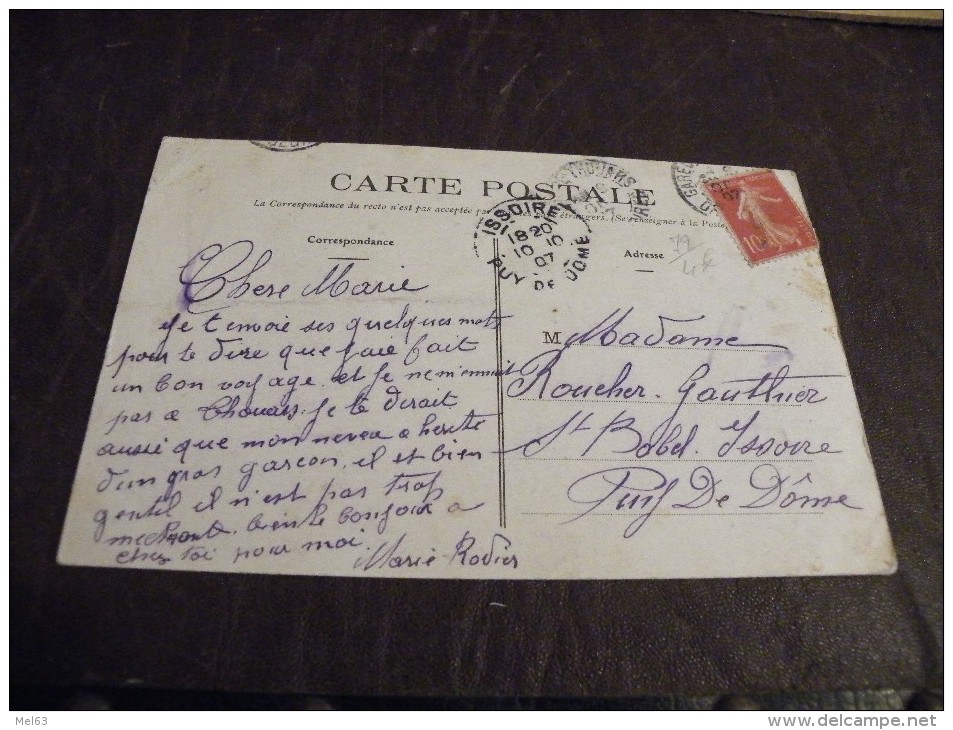 CARTE POSTALE
La Correspondance du recto n'est pas acceptée par
étrangers. (Se renseigner à la Poste
Correspondance
Adresse
ISSOIRE
1820
10 10
07
PUY DE DOME
THOUARS
GARE
10
79
4€
Chere Marie
Je t envoie ses quelques mots
pour te dire que jaie fait
un bon voyage. et je ne mennuit
pas a Thouars. Je te dirait
aussi que mon neveu a herite
dun gros garcon. il et bien
gentil il n'est pas trop
mechant. bien le bonjour a
chez toi pour moi.
Marie Rodier
M Madame
Roucher. Gauthier
St Babel. Issoire
Puy De Dôme
Mel63
www.delcampe.net